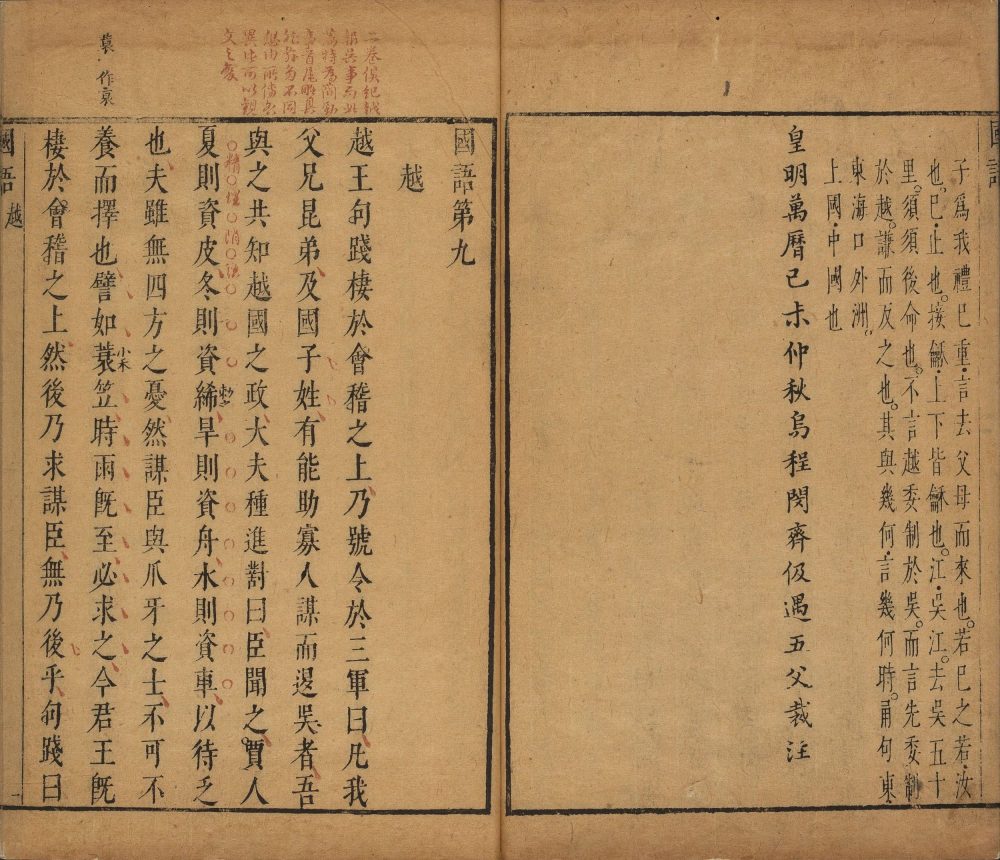 國語
子爲我禮已重言去父母而來也若已之若汝
也已止也接龢上下皆龢也江吳江去吳五十
里須須後命也不言越委制於吳而言先委制
於越謙而反之也其與幾何言幾何時甬句東
東海口外洲
上國中國也
皇明萬曆己未仲秋烏程閔齊伋遇五父裁注
國語第九
越
二卷俱紀越
報吳事而此
篇特爲簡勁
章首尾略具
能弥多不同
想由所傳各
異
文之變
越王句踐棲於會稽之上乃號令於三軍曰凡我
父兄昆弟及國子姓有能助寡人謀而退吳者吾
與之共知越國之政大夫種進對曰臣聞之賈人
夏則資皮冬則資絺旱則資舟水則資車以待乏
也夫雖無四方之憂然謀臣與爪牙之士不可不
養而擇也譬如蓑笠時雨旣至必求之今君王旣
棲於會稽之上然後乃求謀臣無乃後乎句踐曰
作衰
國語 越